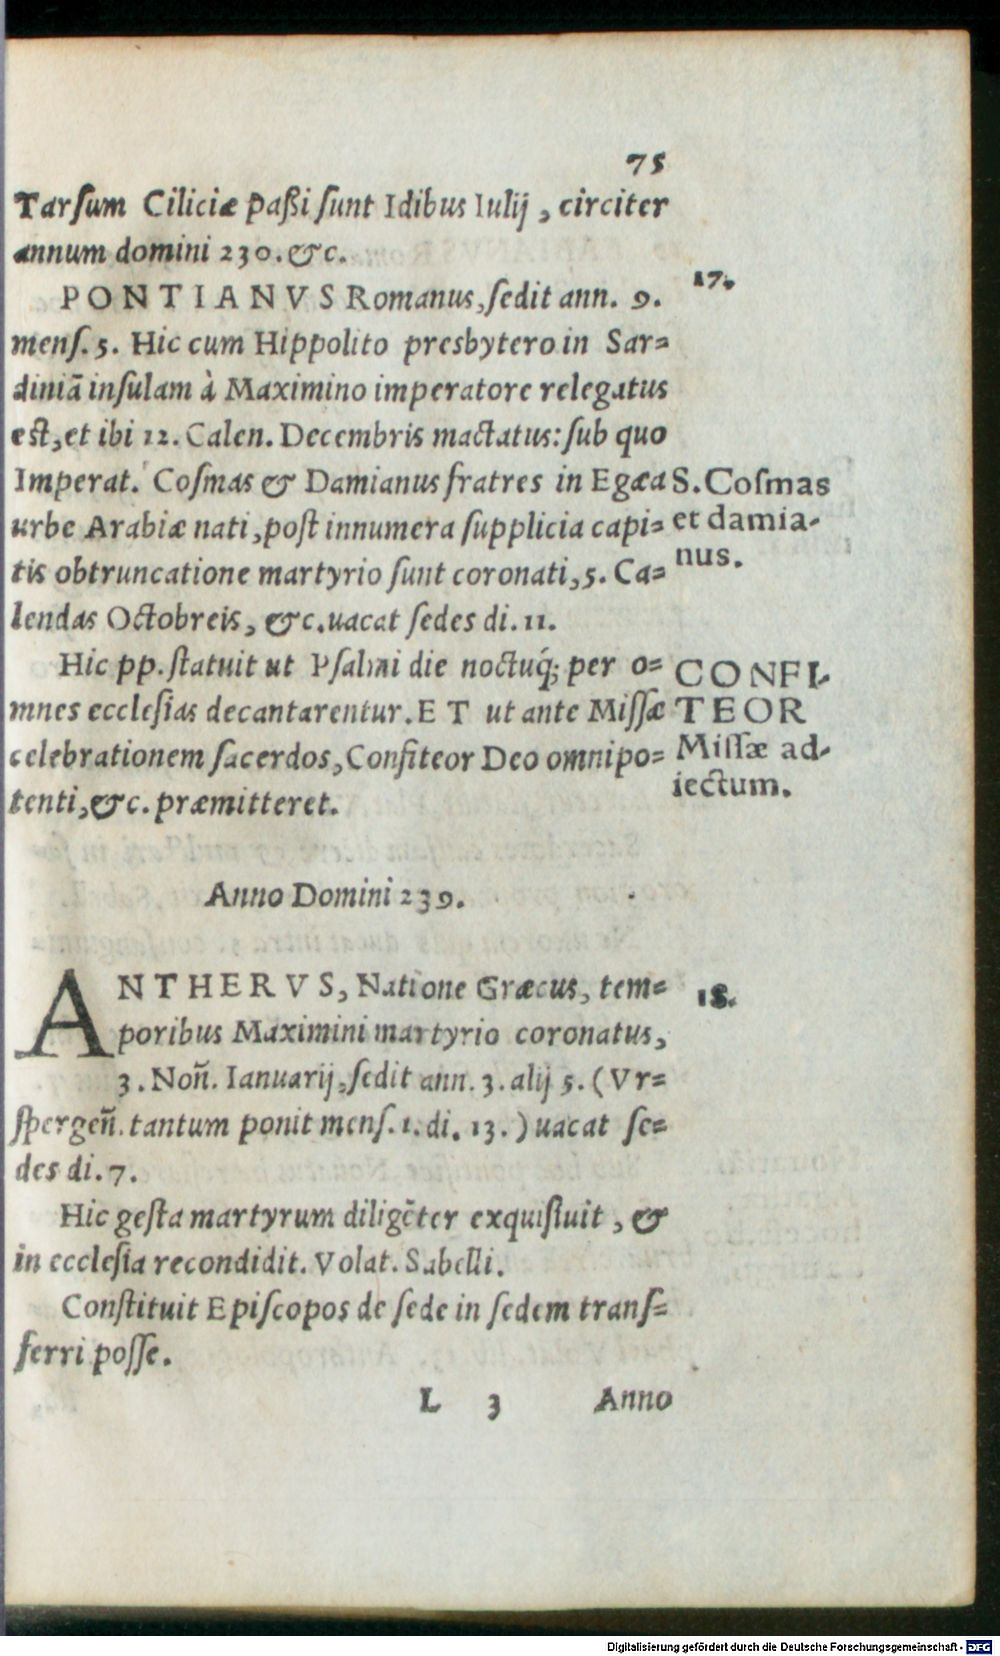 75
Tarſum Ciliciæ paßi ſunt Idibus Iulij, circiter
annum domini 230. &c.
17.
PONTIANVS Romanus, ſedit ann. 9.
menſ. 5. Hic cum Hippolito presbytero in Sar=
diniā inſulam à Maximino imperatore relegatus
eſt, et ibi 12. Calen. Decembris mactatus: ſub quo
Imperat. Coſmas & Damianus fratres in Egæa
urbe Arabiæ nati, poſt innumera ſupplicia capi=
tis obtruncatione martyrio ſunt coronati, 5. Ca=
lendas Octobreis, &c. uacat ſedes di. 11.
S. Coſmas
et damia-
nus.
Hic pp. ſtatuit ut Pſalmi die noctuq́; per o=
mnes eccleſias decantarentur. ET ut ante Miſſæ
celebrationem ſacerdos, Confiteor Deo omnipo=
tenti, &c. præmitteret.
CONFI-
TEOR
Miſſæ ad-
iectum.
Anno Domini 239.
ANTHERVS, Natione Græcus, tem=
poribus Maximini martyrio coronatus,
3. Non̄. Ianuarij, ſedit ann. 3. alij 5. (Vr=
ſpergen̄. tantum ponit menſ. 1. di. 13.) uacat ſe=
des di. 7.
18.
Hic geſta martyrum diligēter exquiſiuit, &
in eccleſia recondidit. Volat. Sabelli.
Conſtituit Epiſcopos de ſede in ſedem tranſ=
ferri poſſe.
L 3 Anno
Digitalisierung gefördert durch die Deutsche Forschungsgemeinschaft - DFG